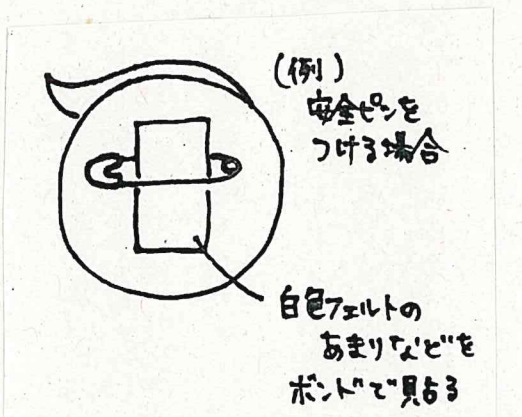 (例)
安全ピンを
つける場合
白色フェルトの
あまりなどを
ボンドで貼る